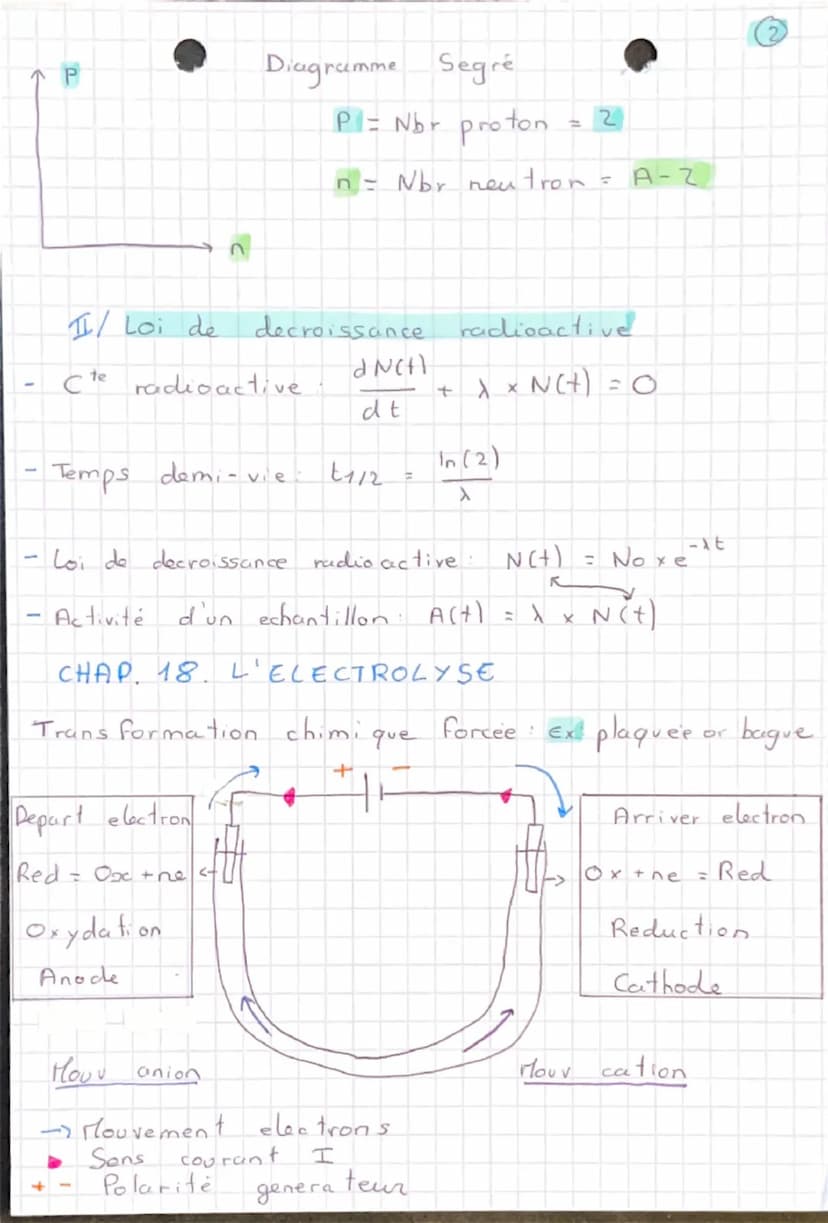 2
Diagramme Segré
P
P = Nbr proton = Z
n = Nbr neutron = A-Z
n
II/ Loi de decroissance radioactive
- Cte radioactive : dN(t)/dt + λ × N(t) = 0
- Temps demi-vie: t1/2 = ln(2)/λ
- Loi de decroissance radioactive : N(t) = No × e^-λt
- Activité d'un echantillon: A(t) = λ × N(t)
CHAP. 18. L'ELECTROLYSE
Transformation chimique forcée : Ex: plaquée or bague
+ -
Depart electron
Red = Ox + ne
Oxydation
Anode
Arriver electron
Ox + ne = Red
Reduction
Cathode
Mouv anion
Mouv cation
→ Mouvement electrons
Sens courant I
+ - Polarité generateur